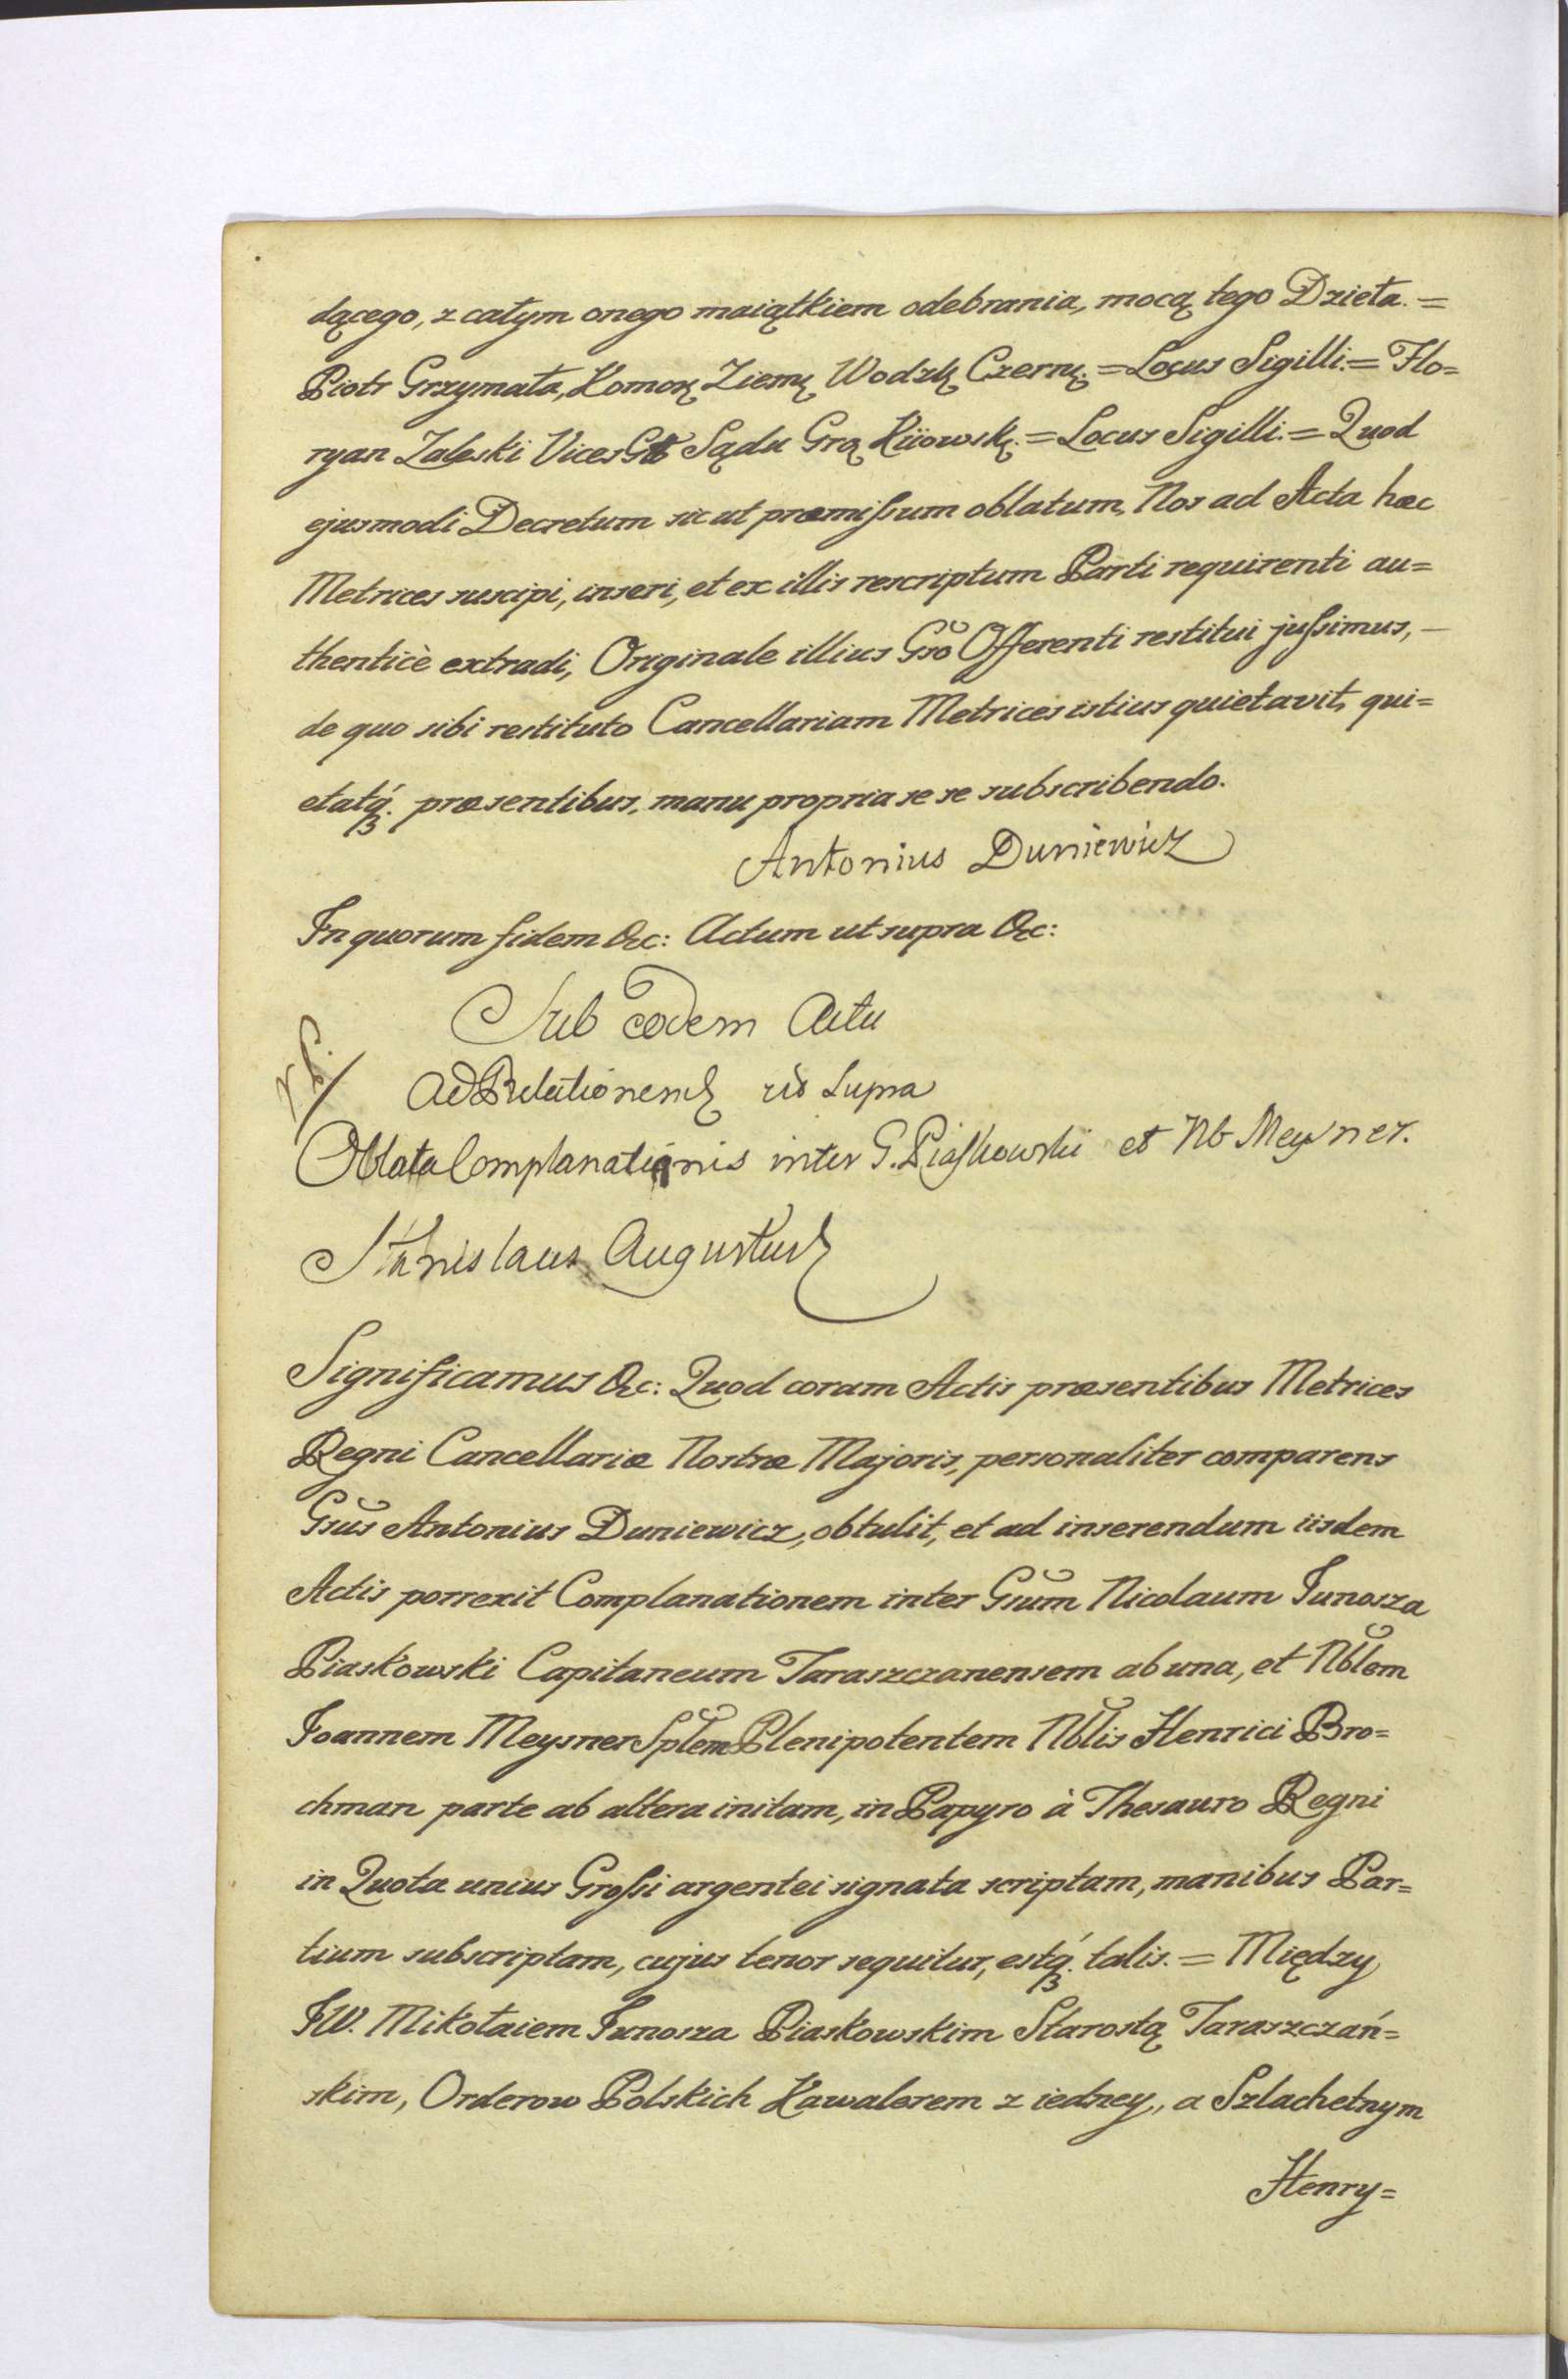 dącego, z całym onego maiątkiem odebrania, mocą tego Dzieła. =
Piotr Grzymała, Komorꝫ Ziemꝫ Wodzꝫ Czernꝫ. = Locus Sigilli. = Flo=
ryan Zaleski Vices Gt Sądu Grꝫ Kiiowskꝫ. = Locus Sigilli. = Quod
ejusmodi Decretum sicut præmiſsum oblatum, Nos ad Acta hæc
Metrices suscipi, inseri, et ex illis rescriptum Parti requirenti au=
thenticè extradi, Originale illius Gso Offerenti restitui juſsimus, —
de quo sibi restituto Cancellariam Metrices istius quietavit, qui=
etatq́ꝫ. præsentibus, manu propria se se subscribendo.
Antonius Duniewicz
In quorum fidem &c: Actum ut supra &c:
Sub eodem Actu
Ad Relationem ut Supra
Oblata Complanationis inter G. Piaſkowski et Nb Meysner.
Stanislaus Augustus
Significamus &c: Quod coram Actis præsentibus Metrices
Regni Cancellariæ Nostræ Majoris, personaliter comparens
Gsus Antonius Duniewicz, obtulit, et ad inserendum iisdem
Actis porrexit Complanationem inter Gsum Nicolaum Junosza
Piaskowski Capitaneum Taraszczanensem ab una, et Nblem
Joannem Meysner Splem Plenipotentem Nblis Henrici Bro=
chman parte ab altera initam, in Papyro à Thesauro Regni
in Quota unius Groſsi argentei signata scriptam, manibus Par=
tium subscriptam, cujus tenor sequitur, estq́ꝫ. talis. = Między
JW. Mikołaiem Junosza Piaskowskim Starostą Taraszczań=
skim, Orderow Polskich Kawalerem z iedney, a Szlachetnym
Henry=